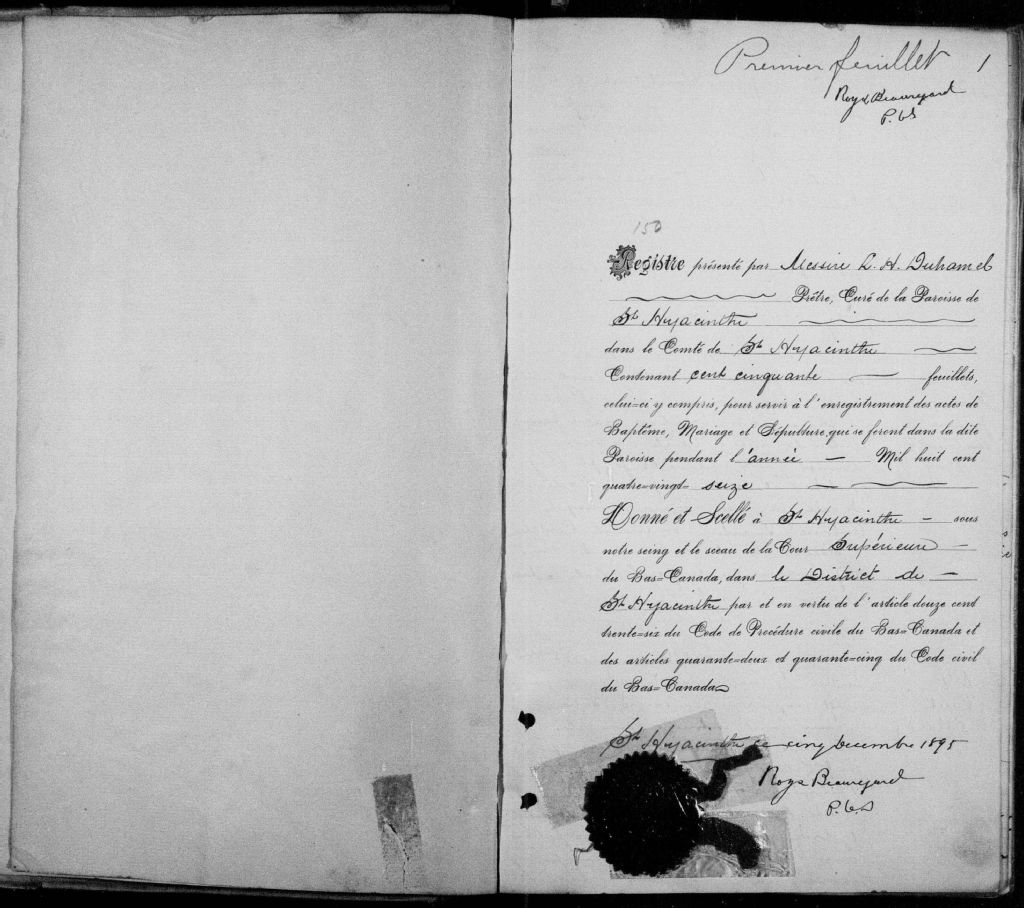 Premier feuillet 1
Roy & Beauregard
P. C. S
150
Registre présenté par Messire L. H. Duhamel
Prêtre, Curé de la Paroisse de
St Hyacinthe
dans le Comté de St Hyacinthe
Contenant cent cinquante feuillets,
celui=ci y compris, pour servir à l'enregistrement des actes de
Baptême, Mariage et Sépulture, qui se feront dans la dite
Paroisse pendant l'année — Mil huit cent
quatre=vingt= seize
Donné et Scellé à St Hyacinthe — sous
notre seing et le sceau de la Cour Supérieure —
du Bas=Canada, dans le District de —
St Hyacinthe par et en vertu de l'article douze cent
trente=six du Code de Procédure civile du Bas=Canada et
des articles quarante=deux et quarante=cinq du Code civil
du Bas=Canada
St Hyacinthe ce cinq Decembre 1895
Roy & Beauregard
P. C. S